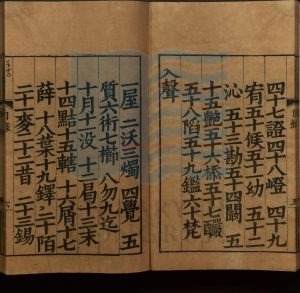 四十七證四十八嶝 四十九
宥五十候五十一幼 五十二
沁 五十三勘五十四闞 五
十五豔五十六㮇五十七釅
五十八陷五十九鑑六十梵
入聲
一屋 二沃三燭 四覺 五
質六術七櫛 八勿九迄
十月十一没 十二曷十三末
十四黠十五轄 十六屑十七
薛 十八藥十九鐸 二十陌
二十一麥二十二昔 二十三錫